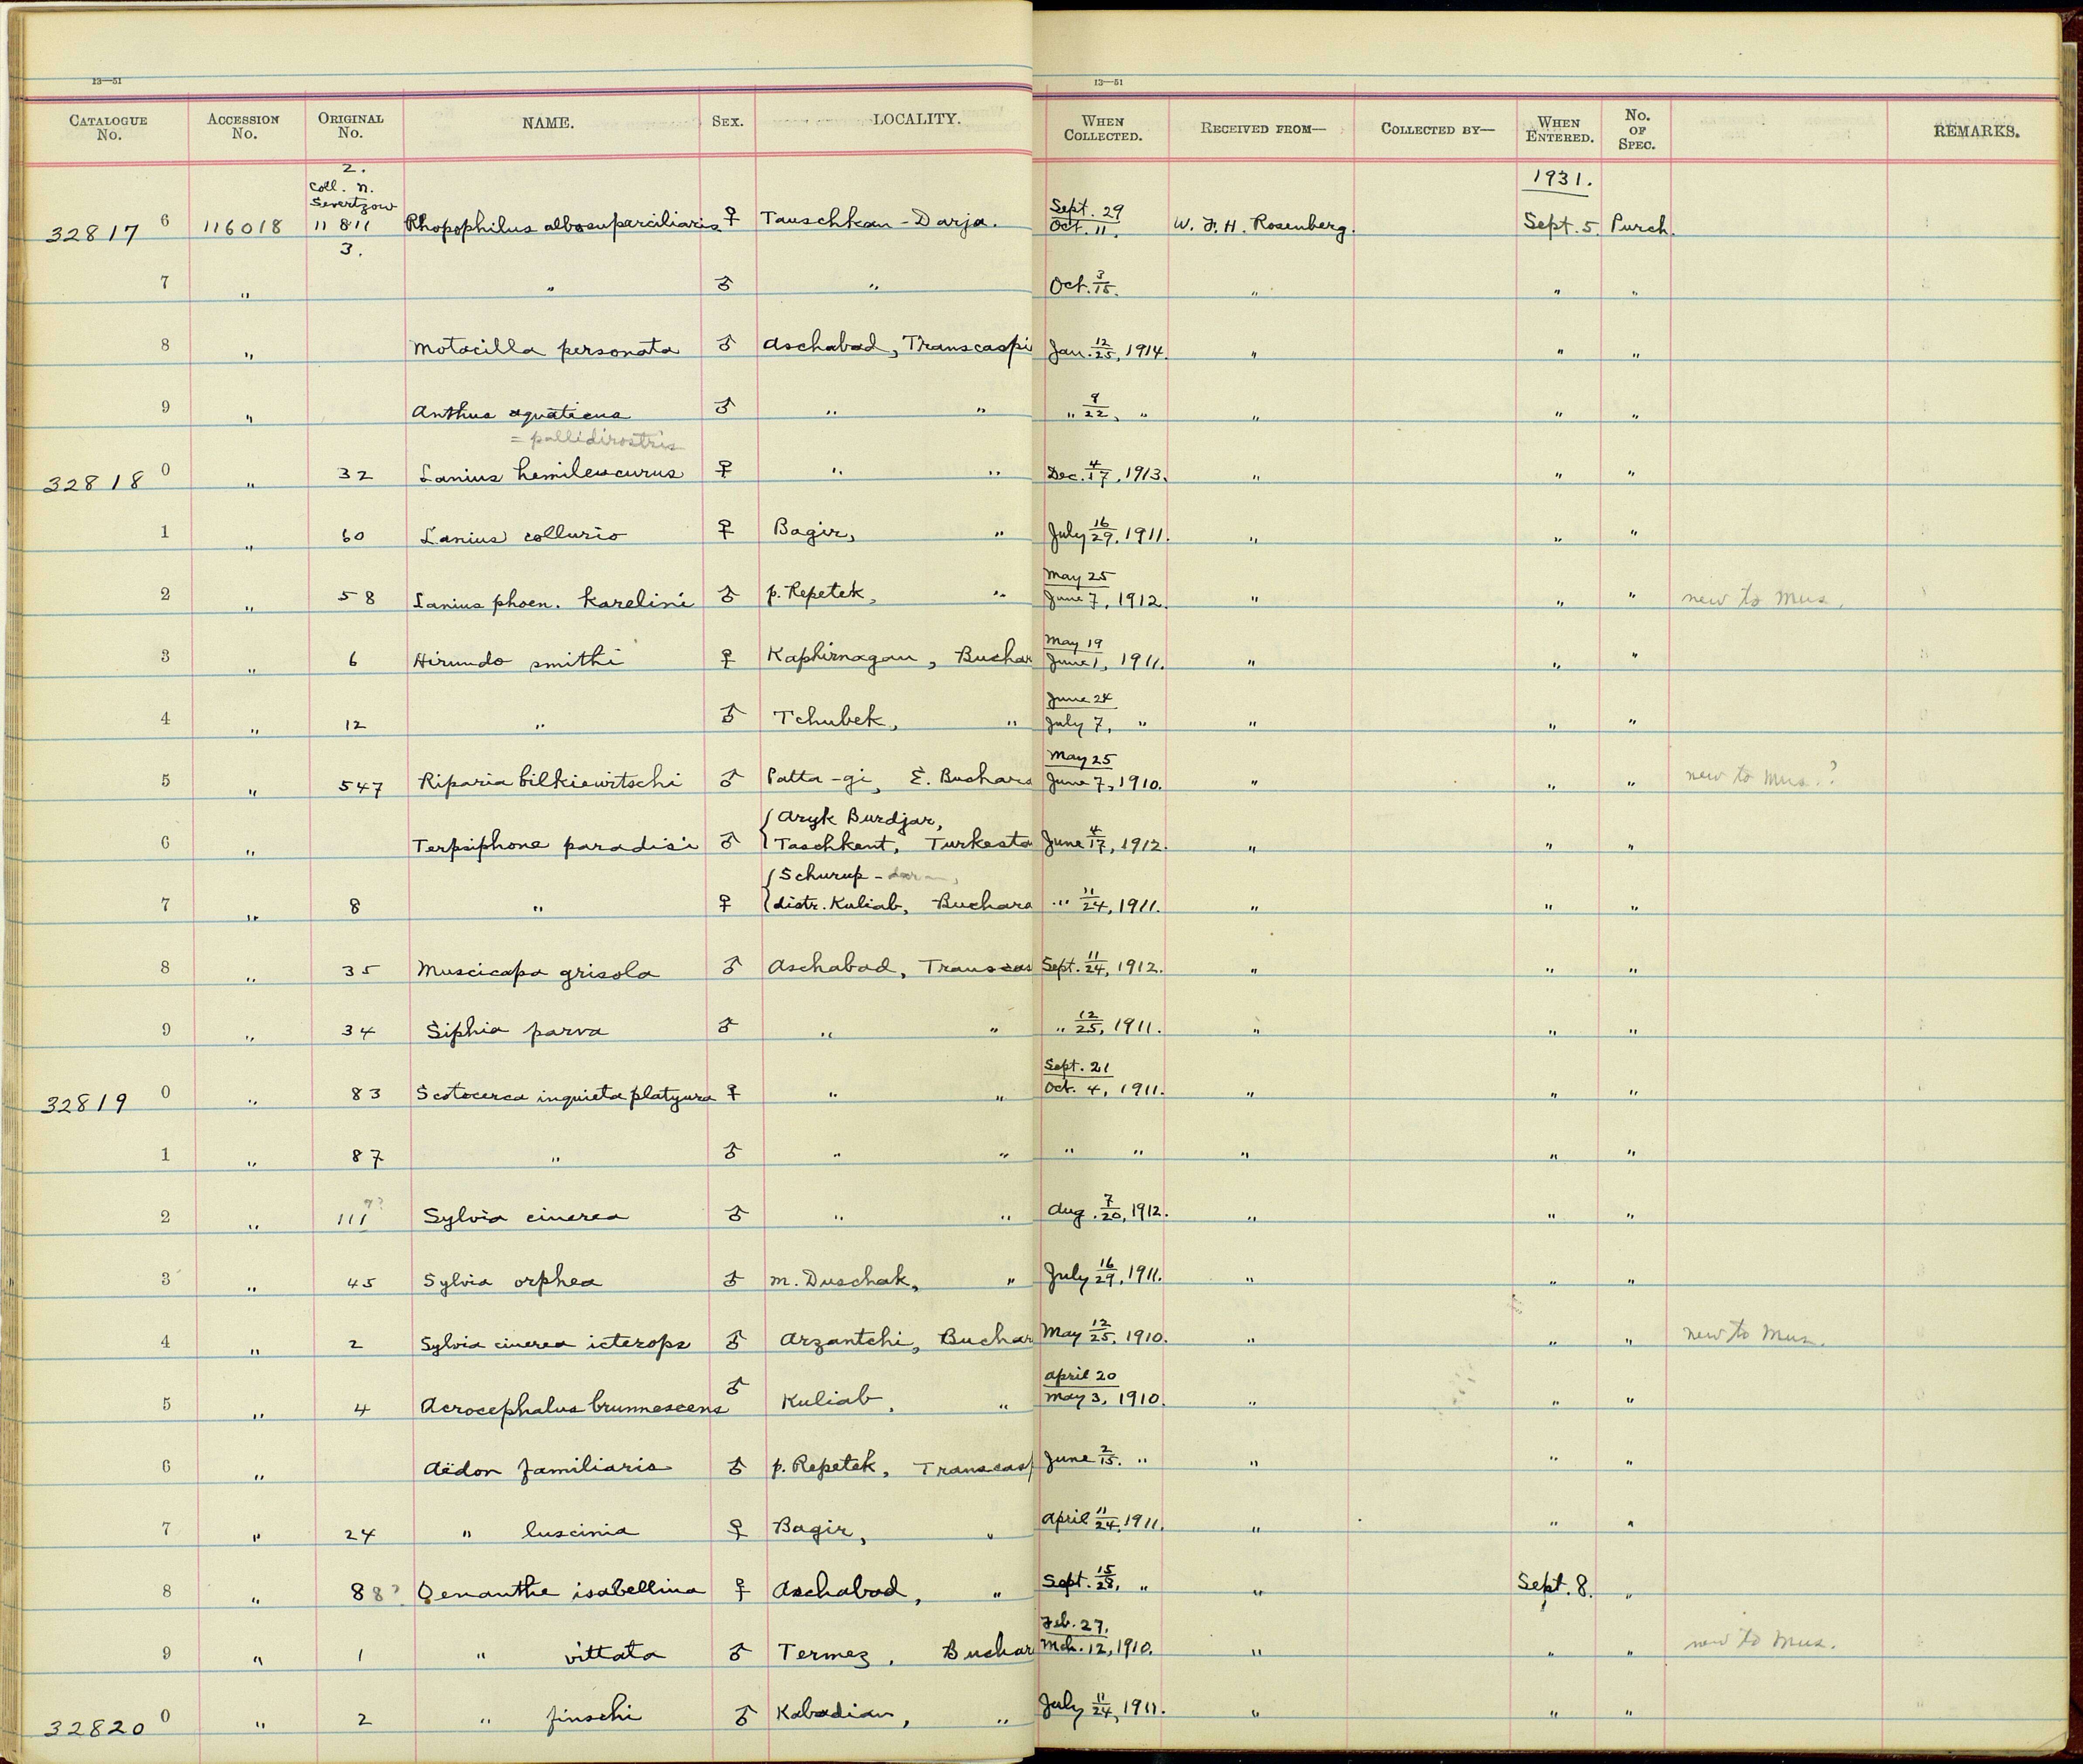 13—51 13—51
CATALOGUE No. ACCESSION No. ORIGINAL No. NAME. SEX. LOCALITY. WHEN COLLECTED. RECEIVED FROM— COLLECTED BY— WHEN ENTERED. No. OF SPEC. REMARKS.
2.
Coll. N.
Severtzow
1931.
32817 6 116018 11 811 Rhopophilus albosuperciliaris ♀ Tauschkan-Darja. Sept. 29 / Oct. 11. W. F. H. Rosenberg. Sept. 5. Purch.
3.
7 " " ♂ " Oct. 3/15. " " "
8 " Motacilla personata ♂ Aschabad, Transcaspi Jan. 12/25, 1914. " " "
9 " Anthus aquaticus ♂ " " " 9/22, " " " "
= pallidirostris
32818 0 " 32 Lanius hemileucurus ♀ " " Dec. 4/17, 1913. " " "
1 " 60 Lanius collurio ♀ Bagir, " July 16/29, 1911. " " "
2 " 58 Lanius phoen. karelini ♂ p. Repetek, " May 25 / June 7, 1912. " " " new to Mus.
3 " 6 Hirundo smithi ♀ Kaphirnagan, Buchar May 19 / June 1, 1911. " " "
4 " 12 " ♂ Tchubek, " June 24 / July 7, " " " "
5 " 547 Riparia bilkiewitschi ♂ Patta-gi, E. Buchara May 25 / June 7, 1910. " " " new to Mus.?
6 " Terpsiphone paradisi ♂ { Aryk Burdjar,
Taschkent, Turkesta June 4/17, 1912. " " "
7 " 8 " ♀ { Schurup-
distr. Kuliab, Buchara " 11/24, 1911. " " "
8 " 35 Muscicapa grisola ♂ Aschabad, Transcas Sept. 11/24, 1912. " " "
9 " 34 Siphia parva ♂ " " " 12/25, 1911. " " "
32819 0 " 83 Scotocerca inquieta platyura ♀ " " Sept. 21 / Oct. 4, 1911. " " "
1 " 87 " ♂ " " " " " " "
2 " 111 7? Sylvia cinerea ♂ " " Aug. 7/20, 1912. " " "
3 " 45 Sylvia orphea ♂ m. Duschak, " July 16/29, 1911. " " "
4 " 2 Sylvia cinerea icterops ♂ Arzantchi, Buchar May 12/25, 1910. " " " new to Mus.
5 " 4 Acrocephalus brunnescens ♂ Kuliab, " April 20 / May 3, 1910. " " "
6 " Aëdon familiaris ♂ p. Repetek, Transcasp June 2/15. " " " "
7 " 24 " luscinia ♀ Bagir, " April 11/24, 1911. " " "
8 " 88? Oenanthe isabellina ♀ Aschabad, " Sept. 15/28, " " Sept. 8. "
9 " 1 " vittata ♂ Termez, Buchar Feb. 27. / Mch. 12, 1910. " " " new to Mus.
32820 0 " 2 " finschi ♂ Kabadian, " July 11/24, 1911. " " "